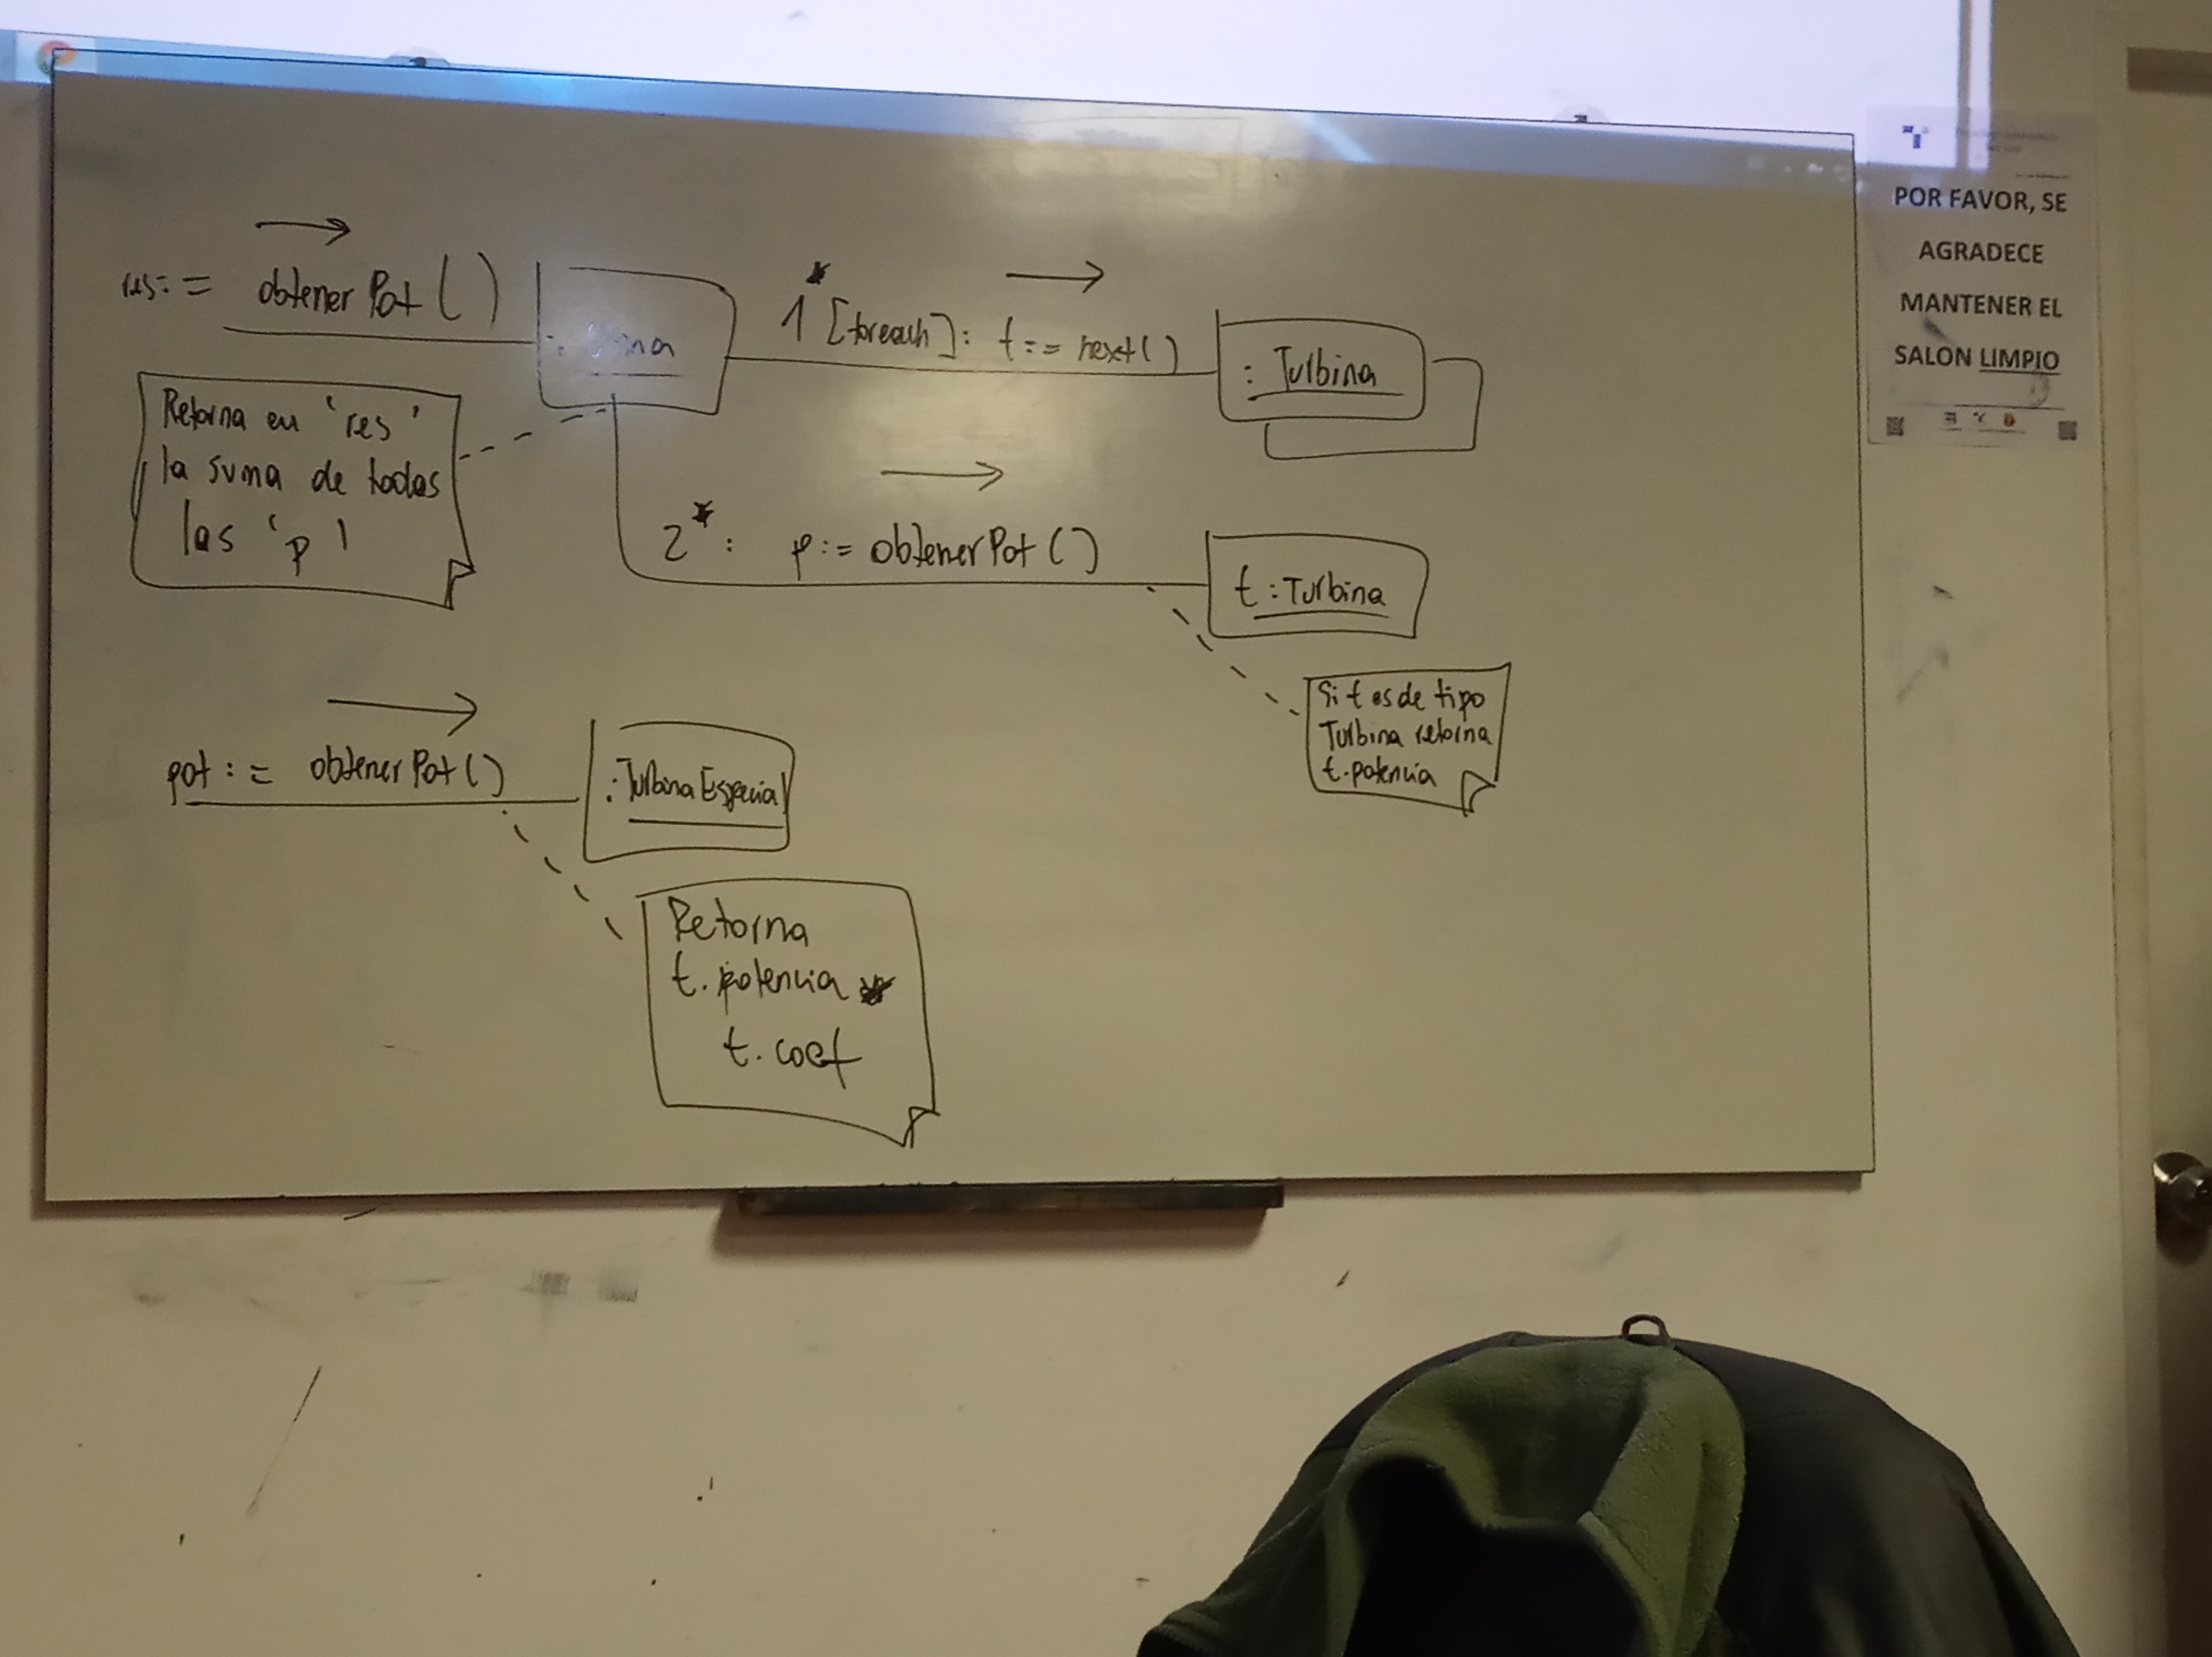 res: = obtenerPot()
1* [foreach]: t:= next()
: Turbina
Retorna en 'res'
la suma de todas
las 'p'
2*: p:= obtenerPot()
t:Turbina
Si t es de tipo
Turbina retorna
t.potencia
pot: = obtenerPot()
:TurbinaEspecial
Retorna
t.potencia *
t.coef
POR FAVOR, SE
AGRADECE
MANTENER EL
SALON LIMPIO